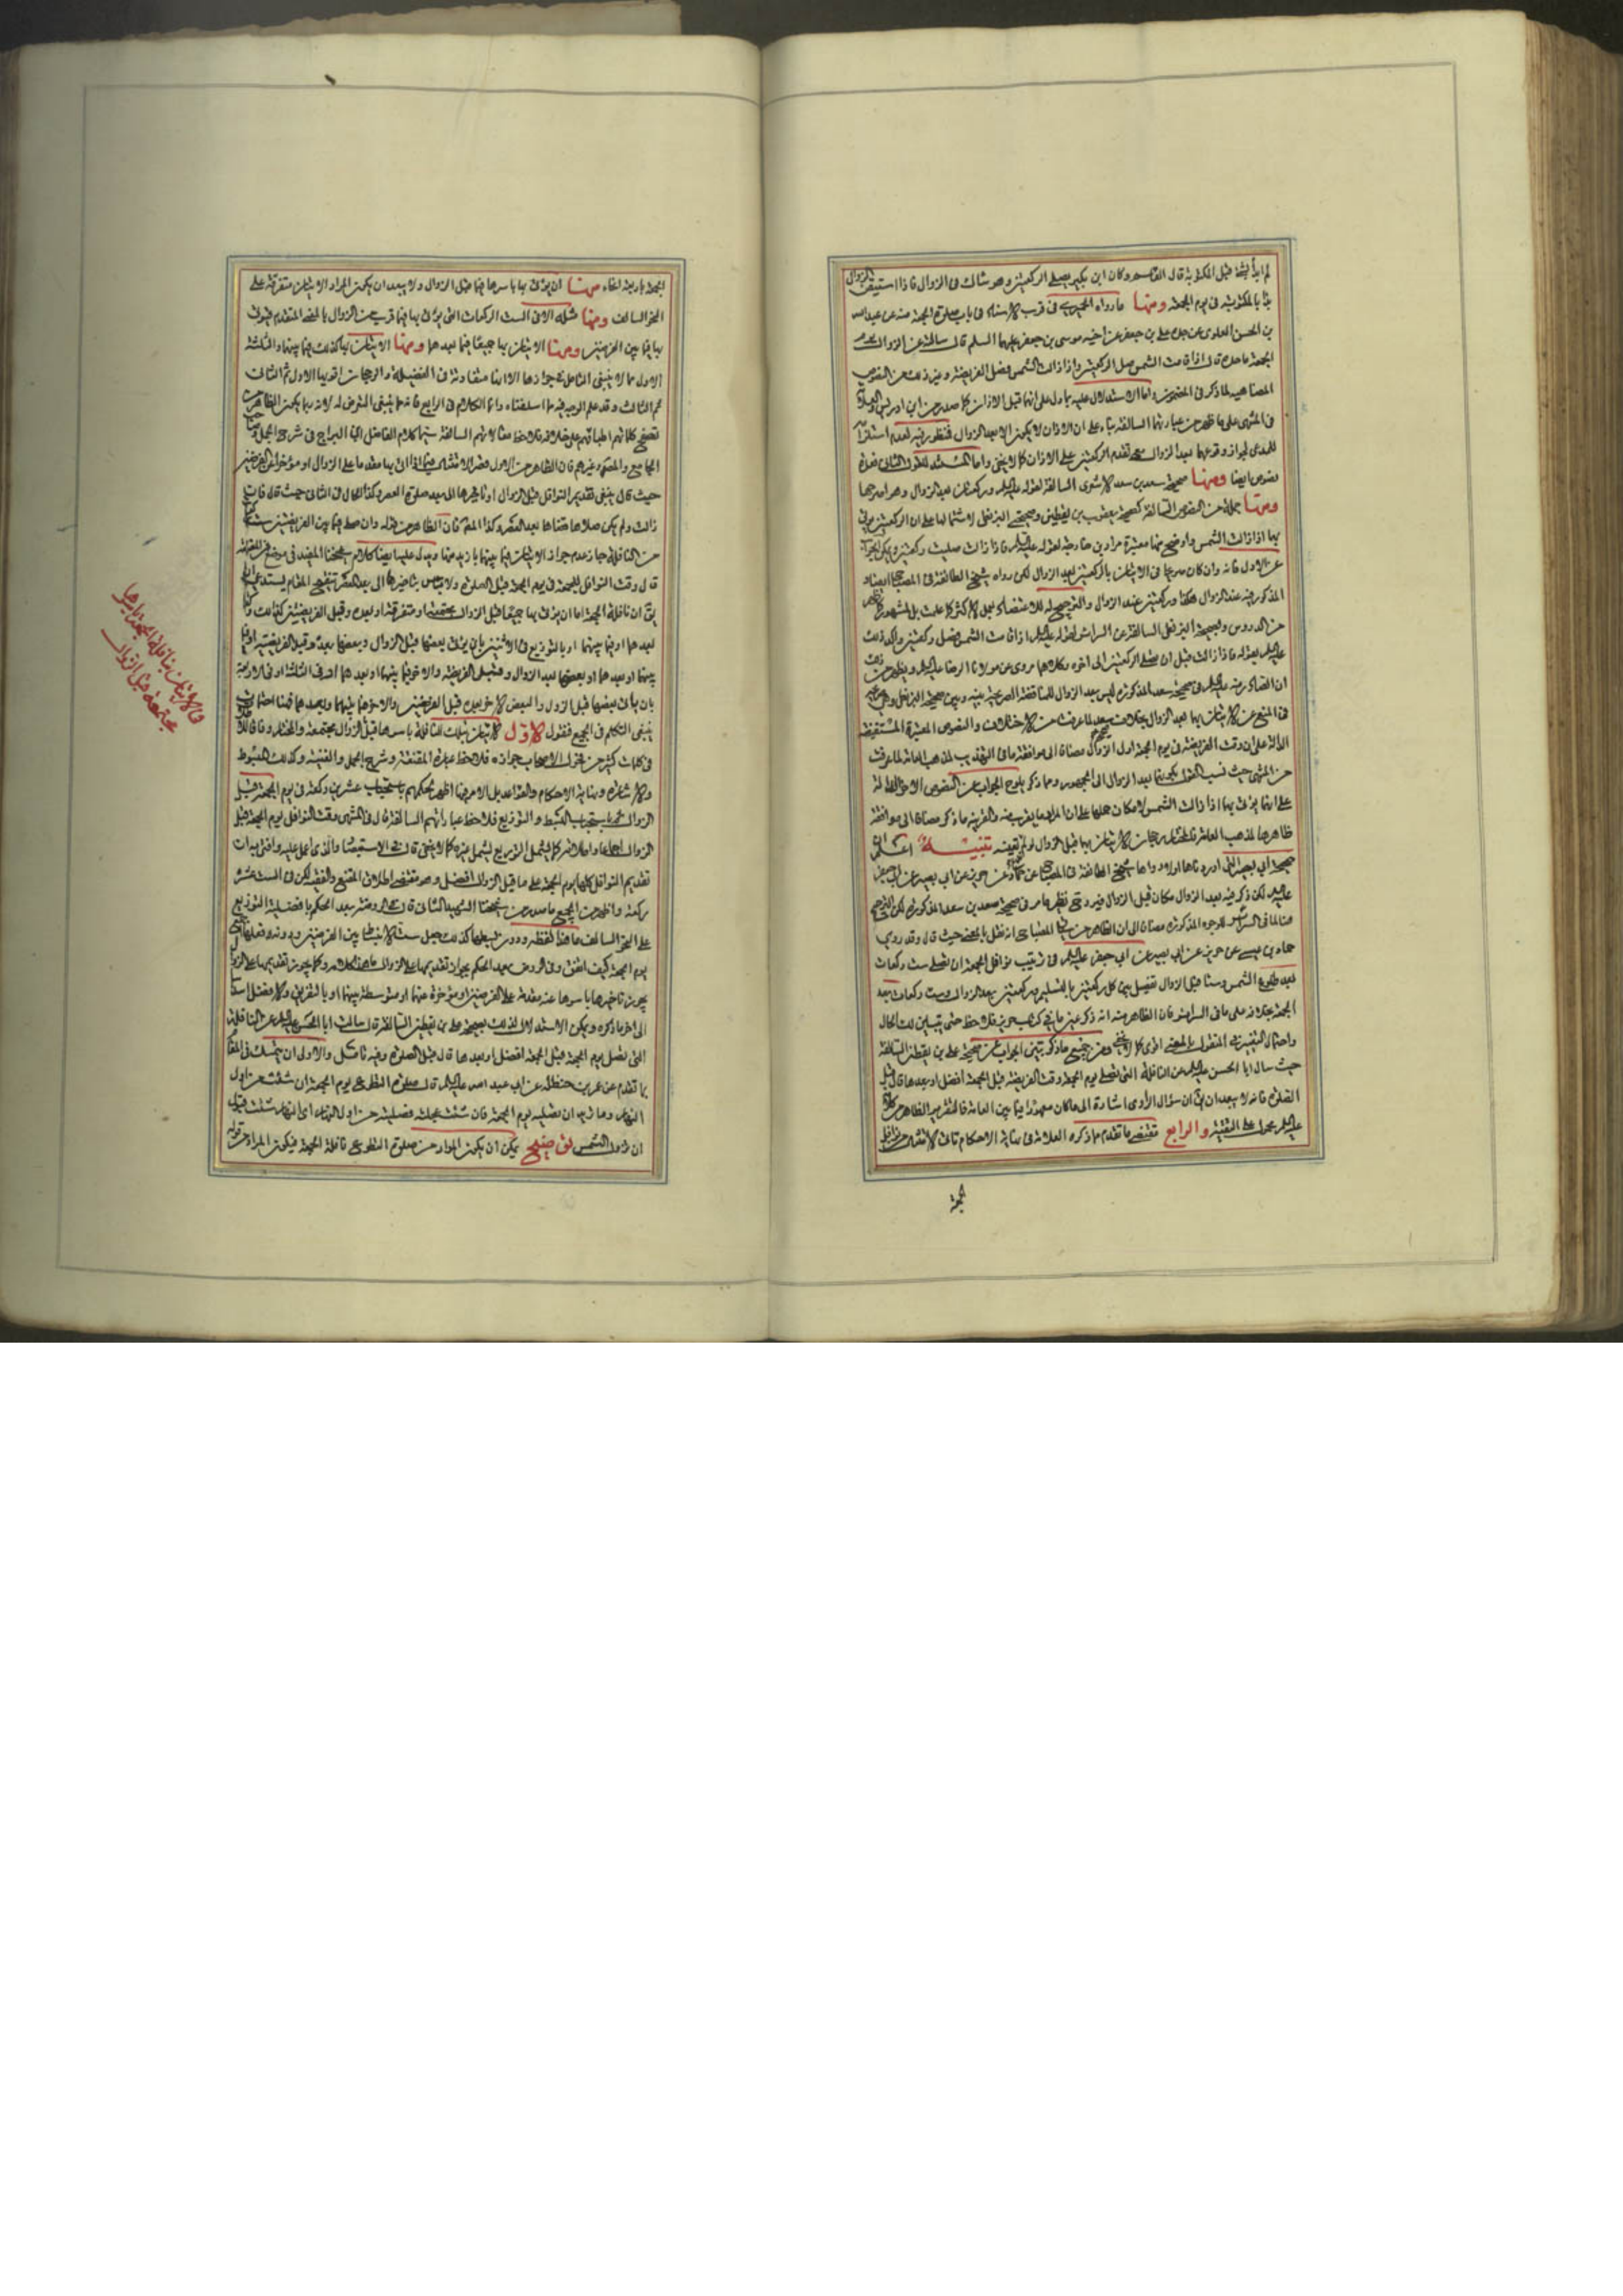 لم ابدأ بشئ قبل المكتوبة قال القاسم وكان ابن بكير يصلى الركعتين وهو شاك فى الزوال فاذا استيقن الزوال
بدأ بالمكتوبة فى يوم الجمعة ومنها ما رواه الحميرى فى قرب الاسناد فى باب صلوة الجمعة منه عن عبد الله
بن الحسن العلوى عن جده على بن جعفر عن اخيه موسى بن جعفر عليهما السلم قال سالته عن الزوال يوم
الجمعة ما حده قال اذا قامت الشمس صل الركعتين واذا زالت الشمس فصل الفريضة وغير ذلك من النصوص
المضاهية لما ذكر فى المضمون واما الاستدلال عليه بما دل على انهما قبل الاذان كما صدر من ابن ادريس والعلامة
فى المنتهى على ما ظهر من عبارتهما السالفة بناء على ان الاذان لا يكون الا بعد الزوال فمنظور فيه
للمدعى لجواز وقوعهما بعد الزوال مع تقدم الركعتين على الاذان كما لا يخفى واما المستند للقول الثانى فعدة
نصوص ايضا ومنها صحيحة سعد بن سعد الاشعرى السالفة لقوله عليه السلم وركعتان بعد الزوال وهو اصرحها
ومنها جملة من النصوص السالفة كصحيحة يعقوب بن يقطين وصحيحتى البزنطى لاشتمالها على ان الركعتين يؤتى
بهما اذا زالت الشمس واوضح منها معتبرة مراد بن خارجة لقوله عليه السلم فاذا زالت صليت ركعتين ويمكن الجواب
عن الاول فانه وان كان صريحا فى الاتيان بالركعتين بعد الزوال لكن رواه شيخ الطائفة فى المصباح ايضا و
المذكور فيه عند الزوال هكذا وركعتين عند الزوال والترجيح له للاعتضاد بعمل الاكثر كما علمت بل المشهور
من الدروس وبصحيحة البزنطى السالفة عن السرائر لقوله عليه السلم اذا قامت الشمس فصل ركعتين واكد ذلك
عليه السلم بقوله فاذا زالت قبل ان تصلى الركعتين الى اخره وكلاهما مروى عن مولانا الرضا عليه السلم ويظهر من ذلك
ان الصادر منه عليه السلم فى صحيحة سعد المذكورة ليس بعد الزوال للمناقضة الصريحة بينه وبين صحيحة البزنطى
فى المنع عن الاتيان بهما بعد الزوال بخلاف سعد لما عرفت من الاختلاف والنصوص المعتبرة المستفيضة
الدالة على ان وقت الفريضة فى يوم الجمعة اول الزوال مضافا الى موافقة ما فى التهذيب لمذهب العامة لما عرفت
من المنتهى حيث نسب القول بكونهما بعد الزوال الى الجمهور ومما ذكر يلوح الجواب عن النصوص الاخر الدالة
على انهما يؤتى بهما اذا زالت الشمس لامكان حملها على ان المراد ما يقرب منه والقرينة ما ذكر مضافا الى موافقة
ظاهرها لمذهب العامة فالمختار رجحان الاتيان بهما قبل الزوال لو لم نقل بتعينه تنبيه اعلم ان
صحيحة ابى بصير التى اوردناها اولا رواها شيخ الطائفة فى المصباح عن حماد عن حريز عن ابى بصير عن ابى جعفر
عليه السلم لكن ذكر فيه بعد الزوال مكان قبل الزوال فيه وح نظير ما مر فى صحيحة سعد بن سعد المذكورة لكن الترجيح
هنا لما فى السرائر للوجوه المذكورة مضافا الى ان الظاهر من المصباح انه نقل بالمعنى حيث قال وقد روى
حماد بن عيسى عن حريز عن ابى بصير عن ابى جعفر عليه السلم فى ترتيب نوافل الجمعة ان تصلى ست ركعات
بعد طلوع الشمس وستا قبل الزوال تفصل بين كل ركعتين بالتسليم وركعتين بعد الزوال وست ركعات بعد
الجمعة بخلافه على ما فى السرائر فان الظاهر منه انه ذكر عين ما فى كتاب حريز فلاحظ حتى يتبين لك الحال
واحتمال التغيير فى المنقول بالمعنى اقوى كما لا يخفى ومن جميع ما ذكر تبين الجواب عن صحيحة على بن يقطين السالفة
حيث سال ابا الحسن عليه السلم عن النافلة التى تصلى يوم الجمعة وقت الفريضة قبل الجمعة افضل او بعدها قال قبل
الصلوة فانه لا يبعد ان يق ان سؤال الراوى اشارة الى ما كان معهودا فيما بين العامة فالتقرير الظاهر من كلامه
عليه السلم محمول على التقية والرابع مقتضى ما تقدم ما ذكره العلامة فى نهاية الاحكام تاتى الانتشار من نوافل
الجمعة
الجمعة باربعة انحاء منها ان يؤتى بها باسرها فيما قبل الزوال ولا يبعد ان يكون المراد الاتيان متفرقة على
النحو السالف ومنها مثله الا فى الست الركعات التى يؤتى بها فيما قرب من الزوال بالمعنى المتقدم فيؤتى
بها فيما بين الفرضين ومنها الاتيان بها جميعا فيما بعدهما ومنها الاتيان بها كذلك فيما بينهما والثلثة
الاول مما لا ينبغى التامل فى جوازها الا انها متفاوتة فى الفضيلة والرجحان اقويها الاول ثم الثانى
ثم الثالث وقد علم الوجه فيه مما اسلفناه وانما الكلام فى الرابع فانه مما ينبغى التعرض له لانه ربما يكون الظاهر من
تصفح كلماتهم اطباقهم على خلافه فلاحظ مقالاتهم السالفة سيما كلام الفاضل ابن البراج فى شرح الجمل وصاحب
الجامع والمعتبر وغيرهم فان الظاهر من الاول حصر الانتشار فيما اذا اتى بها مقدما على الزوال او مؤخرا عن الفرضين
حيث قال ينبغى تقديم النوافل قبل الزوال او تاخيرها الى بعد صلوة العصر وكذا الحال فى الثانى حيث قال فان
زالت ولم يكن صلاها قضاها بعد العصر وكذا المعتبر فان الظاهر من قوله وان صلى فيما بين الفريضتين ست ركعات
من النافلة جاز عدم جواز الاتيان فيما بينهما بازيد منها ويدل عليه ايضا كلام شيخنا المفيد فى موضع من المقنعة
قال وقت النوافل للجمعة فى يوم الجمعة قبل الصلوة ولا باس بتاخيرها الى بعد العصر تنقيح المقام يستدعى ان
يق ان نافلة الجمعة اما ان يؤتى بها جميعا قبل الزوال مجتمعة او متفرقة او بعده وقبل الفريضتين كذلك
بعدهما او فيما بينهما او بالتوزيع فى الاثنين بان يؤتى بعضها قبل الزوال وبعضها بعده وقبل الفريضتين او فيما
بينهما او بعدهما او بعضها بعد الزوال وقبل الفريضة والاخر فيما بينهما او بعدهما او فى الثلثة او فى الاربعة
بان يؤتى بعضها قبل الزوال والبعض الاخر بعده قبل الفرضين والاخر فيما بينهما وبعدهما
ينبغى التكلم فى الجميع فنقول الاول الاتيان بتلك النافلة باسرها قبل الزوال مجتمعة والمختار وفاقا
فى كلمات كثير من فحول الاصحاب جوازه فلاحظ عبارة المقنعة وشرح الجمل والغنية وكذلك المبسوط
والاشارة ونهاية الاحكام والقواعد بل الامر فيها اظهر لحكمهم باستحباب عشرين ركعة فى يوم الجمعة قبل
الزوال ثم باستحباب البسط والتوزيع فلاحظ عباراتهم السالفة قال فى المنتهى وقت النوافل يوم الجمعة قبل
الزوال اجماعا واطلاقه كما يشمل التوزيع يشمل غيره كما لا يخفى قال فى الاستبصار والذى اعمل عليه وافتى به ان
تقديم النوافل كلها يوم الجمعة على ما قبل الزوال افضل وهو مقتضى اطلاق المقنع والفقيه لكن فى الست عشرة
ركعة واظهر من الجميع ما صدر من شيخنا الشهيد الثانى قال فى الروضة بعد الحكم بافضلية التوزيع
على النحو السالف ما هذا لفظه ودون بسطها كذلك جعل ست الانبساط بين الفرضين ودونه فعلها
يوم الجمعة كيف اتفق وفى الروض بعد الحكم بجواز تقديمها على الزوال ما هذا كلامه وكما يجوز تقديمها على الزوال
يجوز تاخيرها باسرها عنه مقدمة على الفرضين او مؤخرة عنهما او متوسطة بينهما او بالتفريق والافضل
الى اخر ما ذكره ويمكن الاستدلال لذلك بصحيحة على بن يقطين السالفة قال سالت ابا الحسن عليه السلم عن النافلة
التى تصلى يوم الجمعة قبل الجمعة افضل او بعدها قال قبل الصلوة وفيه تامل والاولى ان يتمسك فى المقام
بما تقدم عن عمر بن حنظلة عن ابى عبد الله عليه السلم قال صلوة التطوع يوم الجمعة ان شئت من اول
النهار وما تريد ان تصليه يوم الجمعة فان شئت عجلته فصليته من اول النهار اى النهار شئت قبل
ان تزول الشمس توضيح يمكن ان يكون المراد من صلوة التطوع نافلة الجمعة فيكون المراد من قوله
فى الاتيان بنافلة الجمعة باسرها
مجتمعة قبل الزوال